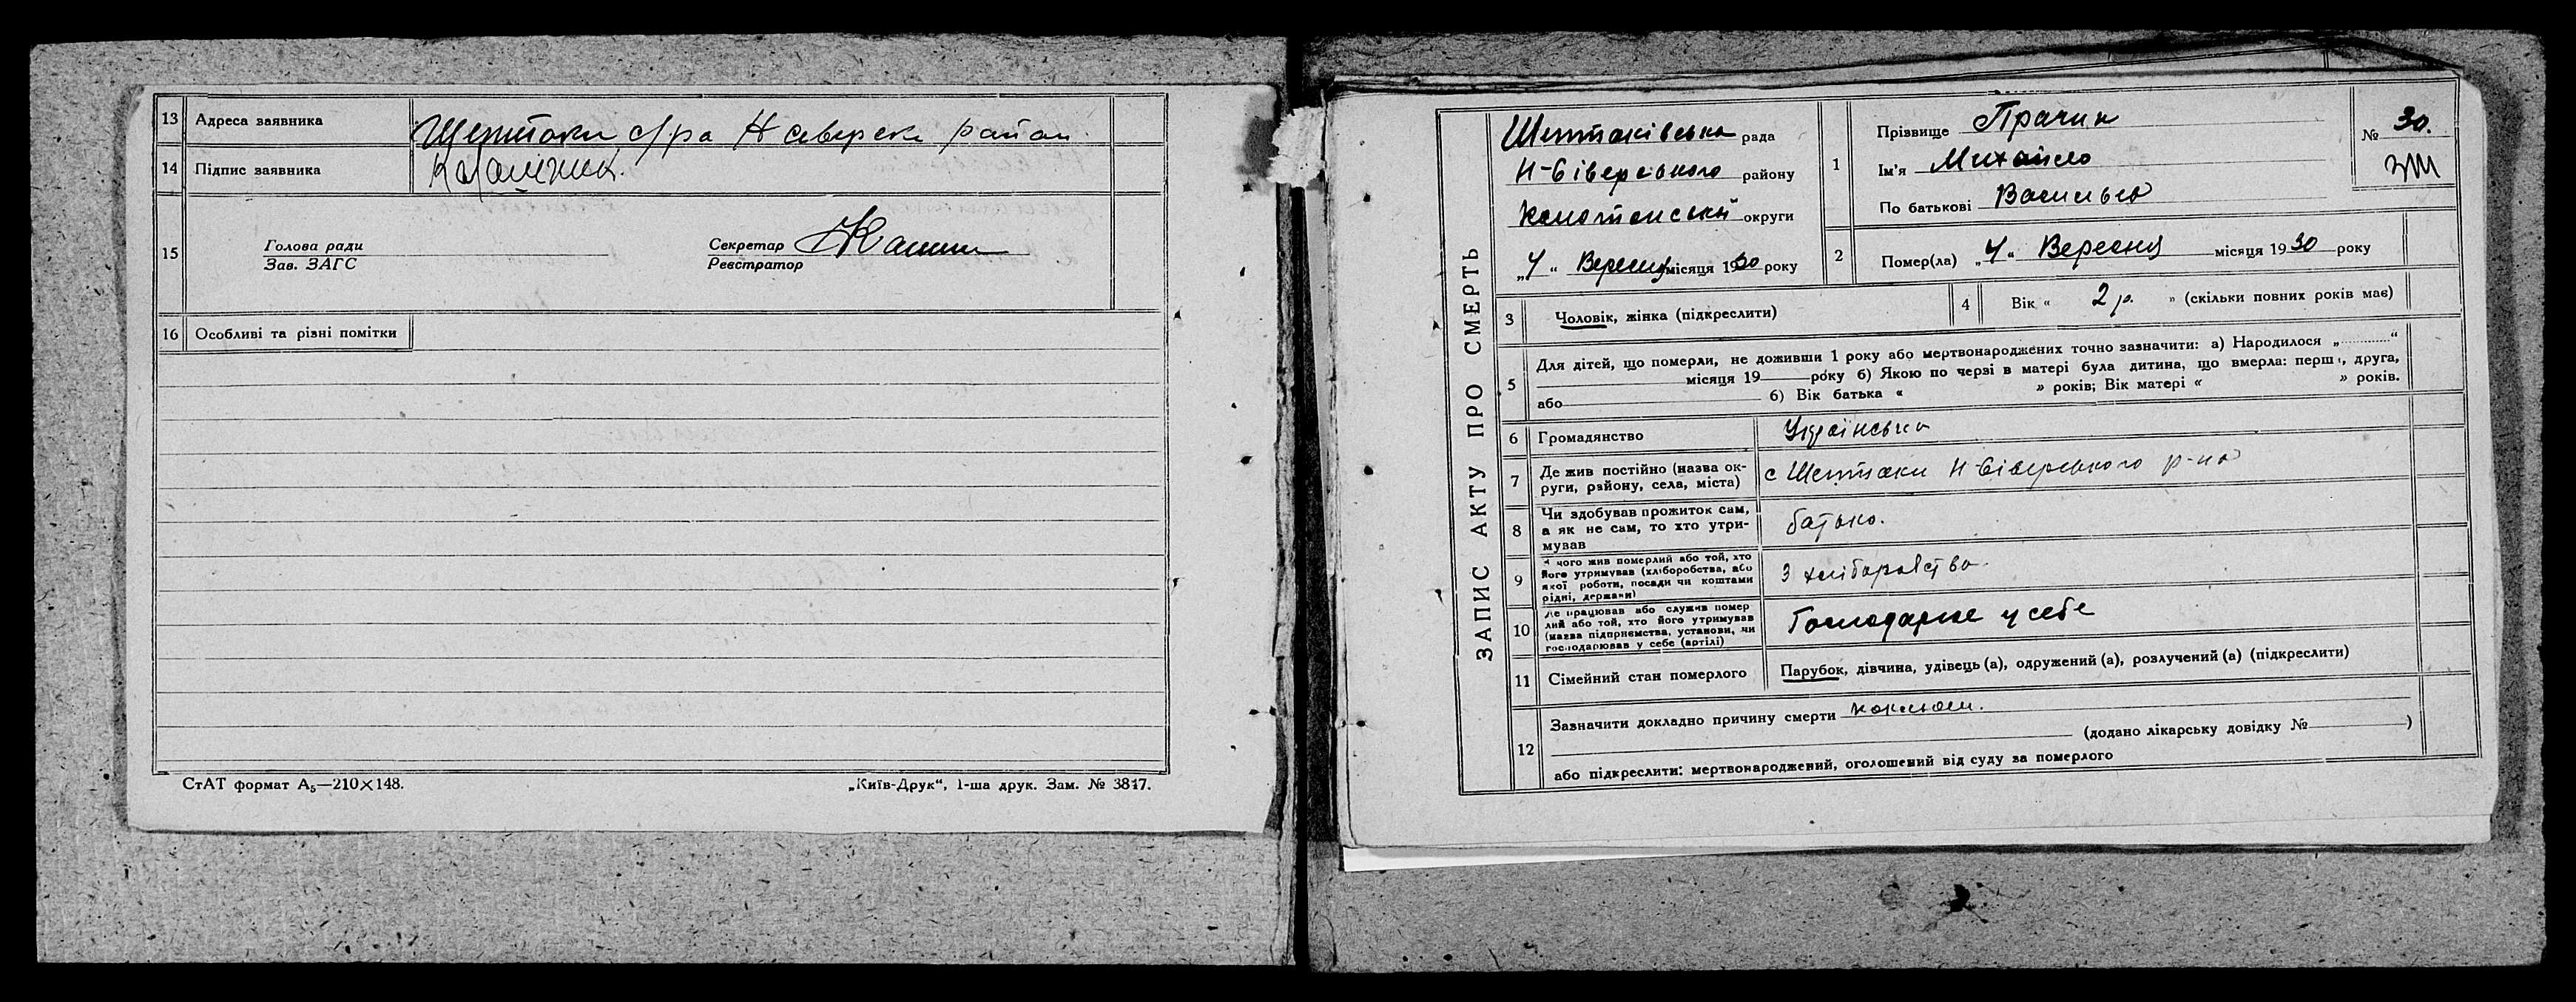 13 Адреса заявника Шептаки с/ра Н Северск. район.
14 Підпис заявника
15 Голова ради
Зав. ЗАГС
Секретар
Реєстратор
16 Особливі та різні помітки
СтАТ формат А₅—210×148.
„Київ-Друк“, 1-ша друк. Зам. № 3847.
ЗАПИС АКТУ ПРО СМЕРТЬ
Шептаківська рада
Н-Сіверського району
Конотопської округи
„4“ Вересня місяця 1930 року
1 Прізвище Прачик
Ім'я Михайло
По батькові Васильов
№ 30.
2 Помер(ла) „4“ Вересня місяця 1930 року
3 Чоловік, жінка (підкреслити)
4 Вік « 2 р. » (скільки повних років має)
5 Для дітей, що померли, не доживши 1 року або мертвонароджених точно зазначити: а) Народилося „ “
місяця 19 року б) Якою по черзі в матері була дитина, що вмерла: перша, друга,
або б) Вік батька « » років; Вік матері « » років.
6 Громадянство Українська
7 Де жив постійно (назва ок-
руги, району, села, міста) с Шептаки Н-Сіверського р-на
8 Чи здобував прожиток сам,
а як не сам, то хто утри-
мував батько.
9 З чого жив померлий або той, хто
його утримував (хліборобства, або
якої роботи, посади чи коштами
рідні, держави) З хліборобства
10 Де працював або служив помер
лий або той, хто його утримував
(назва підприємства, установи, чи
господарював у себе (артілі) Господарює у себе
11 Сімейний стан померлого Парубок, дівчина, удівець (а), одружений (а), розлучений (а) (підкреслити)
12 Зазначити докладно причину смерти коклюш.
(додано лікарську довідку № )
або підкреслити: мертвонароджений, оголошений від суду за померлого